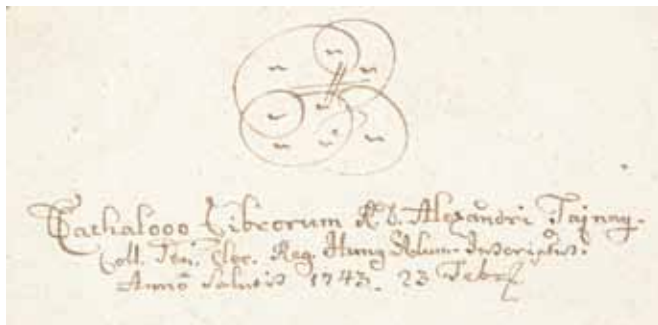 Cathalogo Librorum R. D. Alexandri Tajnay.
Coll. Jeu. Elec. Reg. Hung Alum. Inscriptus.
Anno Salutis 1743. 23 Febr